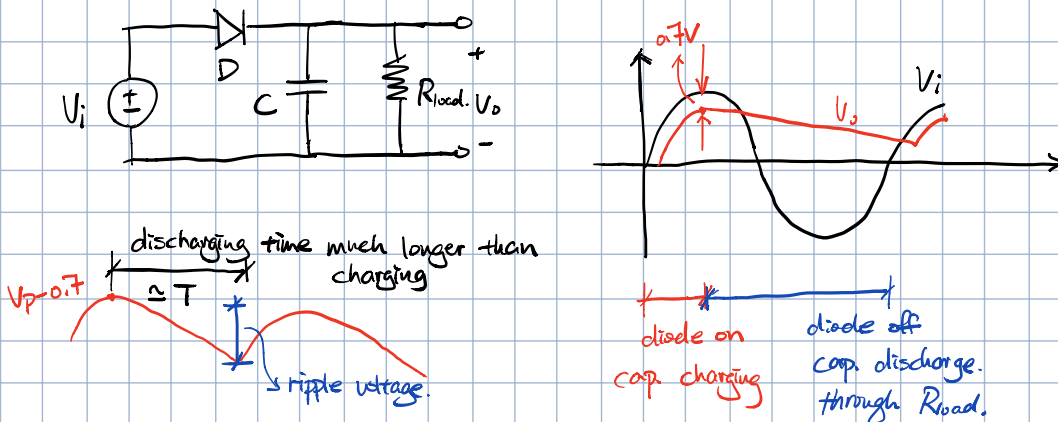 D
Vi
±
C
Rload.
+
Vo
-
0.7V
Vi
Vo
discharging time much longer than
charging
Vp-0.7
≃ T
ripple voltage.
diode on
cap. charging
diode off
cap. discharge.
through Rload.